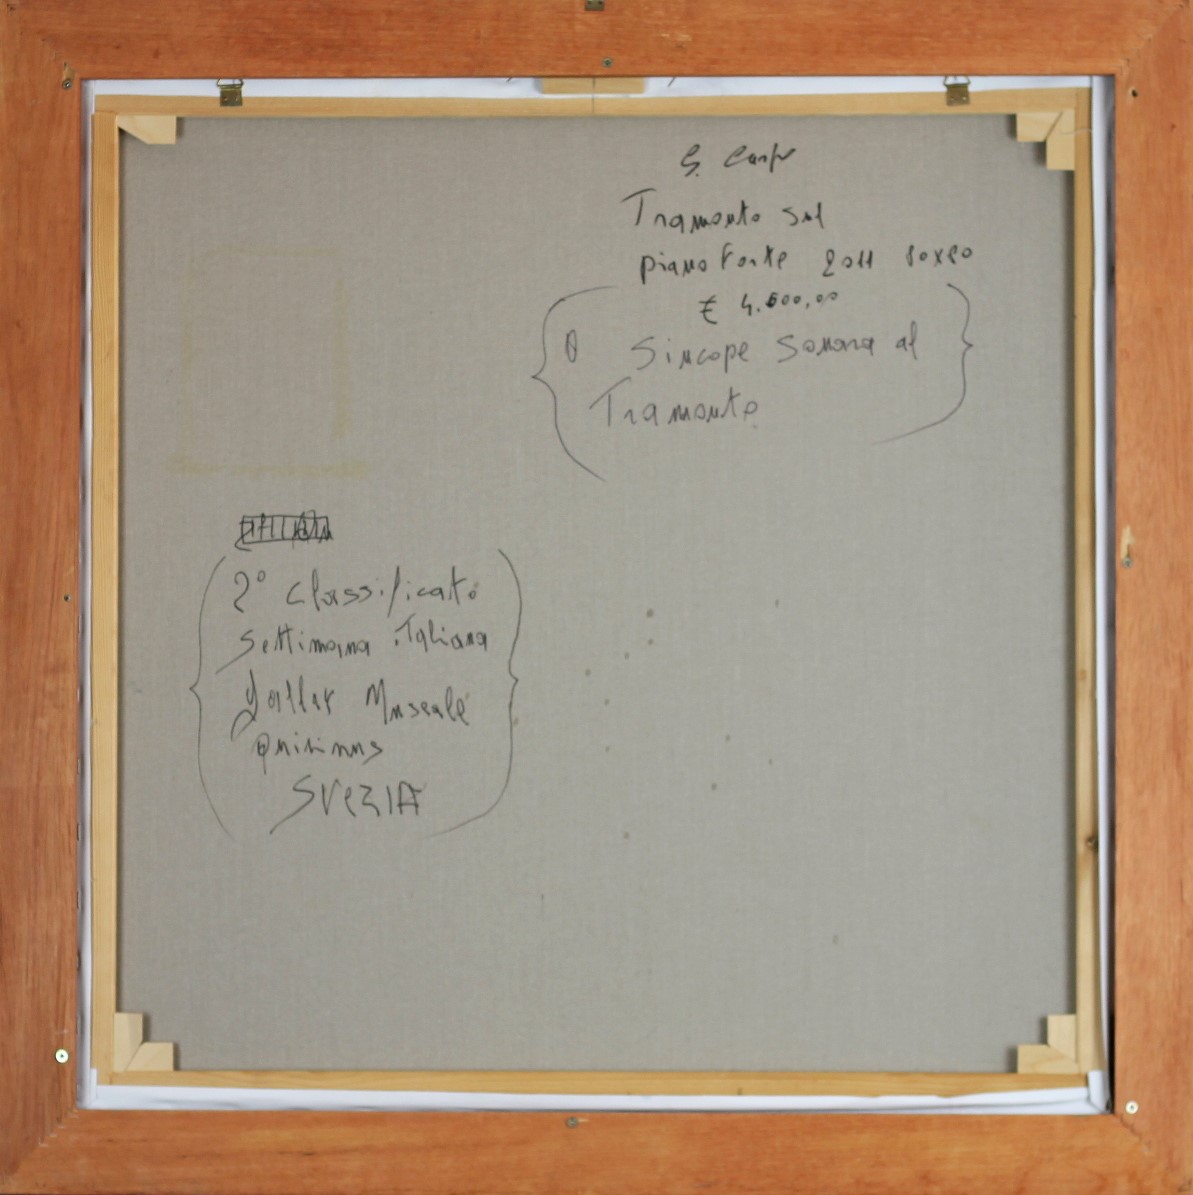 Tramonto sul
pianoforte 2011 80x80
€ 4.600,00
O Sincope Sonora al
Tramonto
2° classificato
settimana italiana
Museale
quirinus
SVEZIA